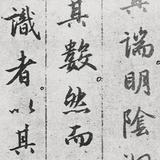 其端明陰
其數然而
識者以其